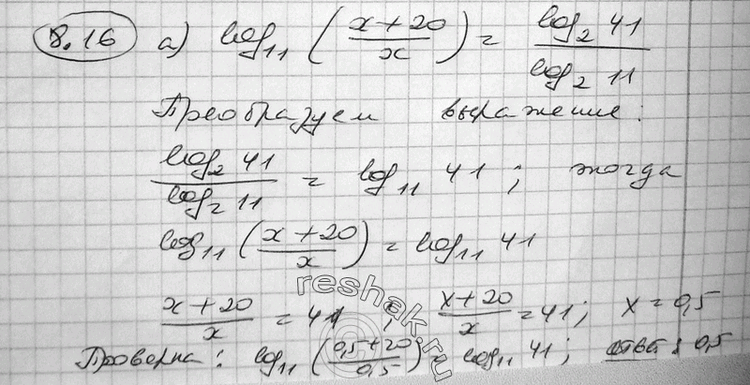 8.16 а) log₁₁ ((x+20)/x) = log₂ 41 / log₂ 11
Преобразуем выражение:
log₂ 41 / log₂ 11 = log₁₁ 41 ; тогда
log₁₁ ((x+20)/x) = log₁₁ 41
(x+20)/x = 41 ; (x+20)/x = 41 ; x = 0,5
Проверка : log₁₁ ((0,5+20)/0,5) = log₁₁ 41 ; ответ : 0,5
reshak.ru